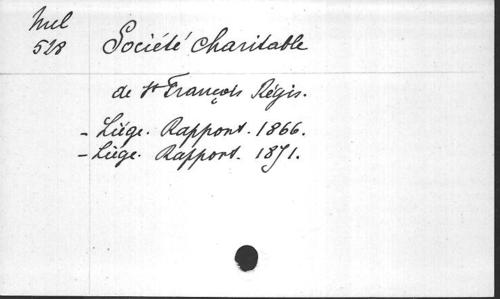 Mel
528
Société charitable
de St François Régis.
- Liége. Rapport. 1866.
- Liége. Rapport. 1871.